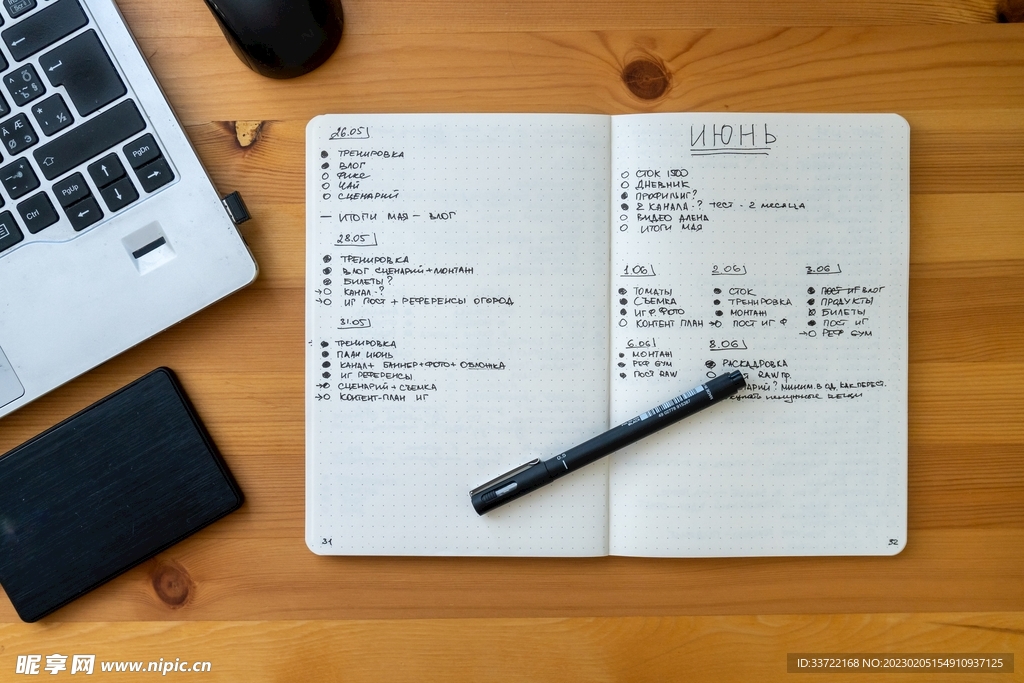 26.05
● ТРЕНИРОВКА
● ВЛОГ
○ ФИКС
○ ЧАЙ
○ СЦЕНАРИЙ
— ИТОГИ МАЯ — ВЛОГ
28.05
● ТРЕНИРОВКА
● ВЛОГ СЦЕНАРИЙ + МОНТАЖ
● БИЛЕТЫ?
→○ КАНАЛ - ?
→○ ИГ ПОСТ + РЕФЕРЕНСЫ ОГОРОД
31.05
● ТРЕНИРОВКА
● ПЛАН ИЮНЬ
● КАНАЛ + БАННЕР + ФОТО + ОБЛОЖКА
● ИГ РЕФЕРЕНСЫ
→○ СЦЕНАРИЙ + СЪЕМКА
→○ КОНТЕНТ-ПЛАН ИГ
31
ИЮНЬ
○ СТОК 1500
○ ДНЕВНИК
● ПРОФИЛЬ ИГ?
● 2 КАНАЛА - ? ТЕСТ - 2 МЕСЯЦА
○ ВИДЕО АЛЕНА
○ ИТОГИ МАЯ
1.06
● ТОМАТЫ
● СЪЕМКА
● ИГ Ф. ФОТО
○ КОНТЕНТ ПЛАН
2.06
● СТОК
● ТРЕНИРОВКА
● МОНТАЖ
→○ ПОСТ ИГ Ф
3.06
● ПОСТ ИГ ВЛОГ
● ПРОДУКТЫ
⊗ БИЛЕТЫ
● ПОСТ ИГ
→○ РЕФ БУМ
6.06
● МОНТАЖ
● РЕФ БУМ
● ПОСТ RAW
8.06
● РАСКАДРОВКА
RAW ПР.
НАРИЙ? МИНИМ. В ОД. КАК ПЕРЕСТ.
НЕНУЖНЫЕ ВЕЩИ
32
0.5
PgDn
PgUp
Ctrl
昵享网 www.nipic.cn
ID:33722168 NO:20230205154910937125